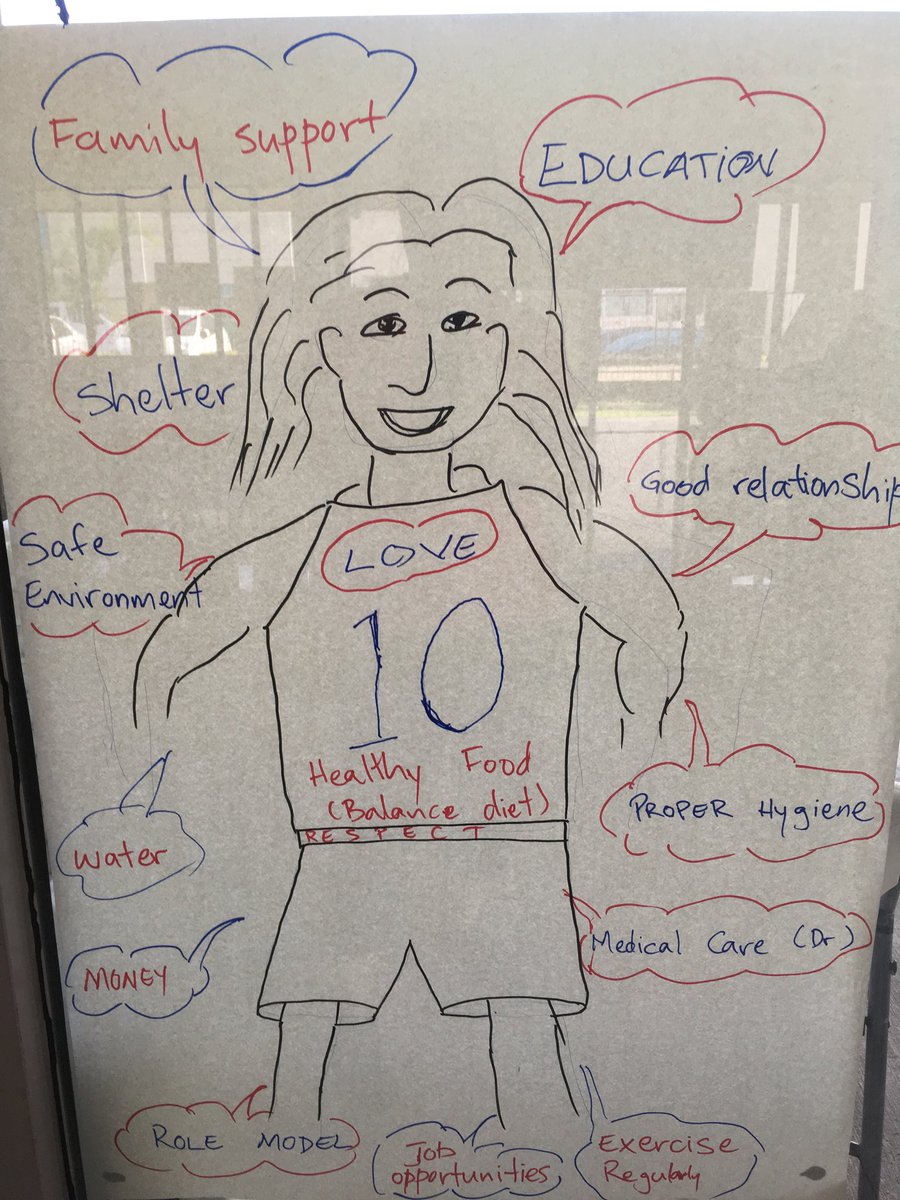 Family support
EDUCATION
Shelter
Good relationship
Safe
Environment
LOVE
10
Healthy Food
(Balance diet)
RESPECT
PROPER Hygiene
water
Medical Care (Dr)
MONEY
ROLE MODEL
Job
opportunities
Exercise
Regularly